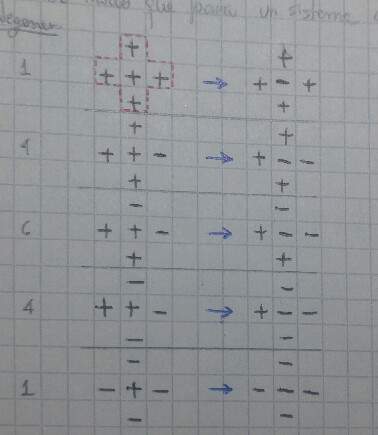 que para un sistema
degener
+ +
1 + + + → + - +
+ +
+ +
4 + + - → + - -
+ +
- -
6 + + - → + - -
+ +
- -
4 + + - → + - -
- -
- -
1 - + - → - - -
- -